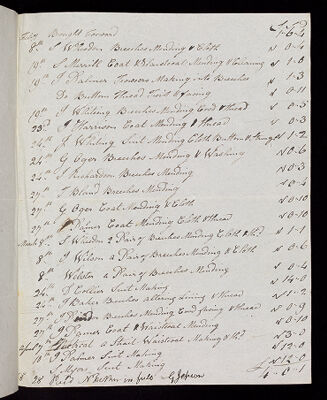 Feby Brought Forward 1-6-4
8th S Wheldon Breeches Mending & Cloth 0-4
19th S Merrill Coat & Waistcoat Mending & Cleaning 1-0
19th J Palmer Trowsers Making into Breeches 1-3
Do Buttons Thread Twist & facing 0-11
19th Whiting Breeches Mending Cloth & thread 0-5
23d Harrison Coat Mending & thread 0-3
24th J Whiting Suit Mending Cloth Buttons & 1-2
24th G Oger Breeches Mending & Washing 0-6
24th Richardson Breeches Mending 0-3
27th J Bland Breeches Mending 0-4
27th G Oger Coat Mending & Cloth 0-10
27th Palmer Coat Mending Cloth & thread 0-10
March 4th S 2 Pair of Breeches Mending Cloth & thd 1-1
8th J Wilson a Pair of Breeches Mending & Cloth 0-6
8th Webster a Pair of Breeches Mending 0-4
24th D Collier Suit Making 14-0
24th J Baker Breeches altering Lining & thread 1-2
27th Breeches Mending Cloth facing & thread 0-9
27th J Palmer Coat & Waistcoat Mending 0-10
April 7th a Strait Waistcoat Making & thd 3-0
18th J Palmer Suit Making 12-0
S. Myor Suit Making 12-0
28 Recd in full G Jepson 4-0-1